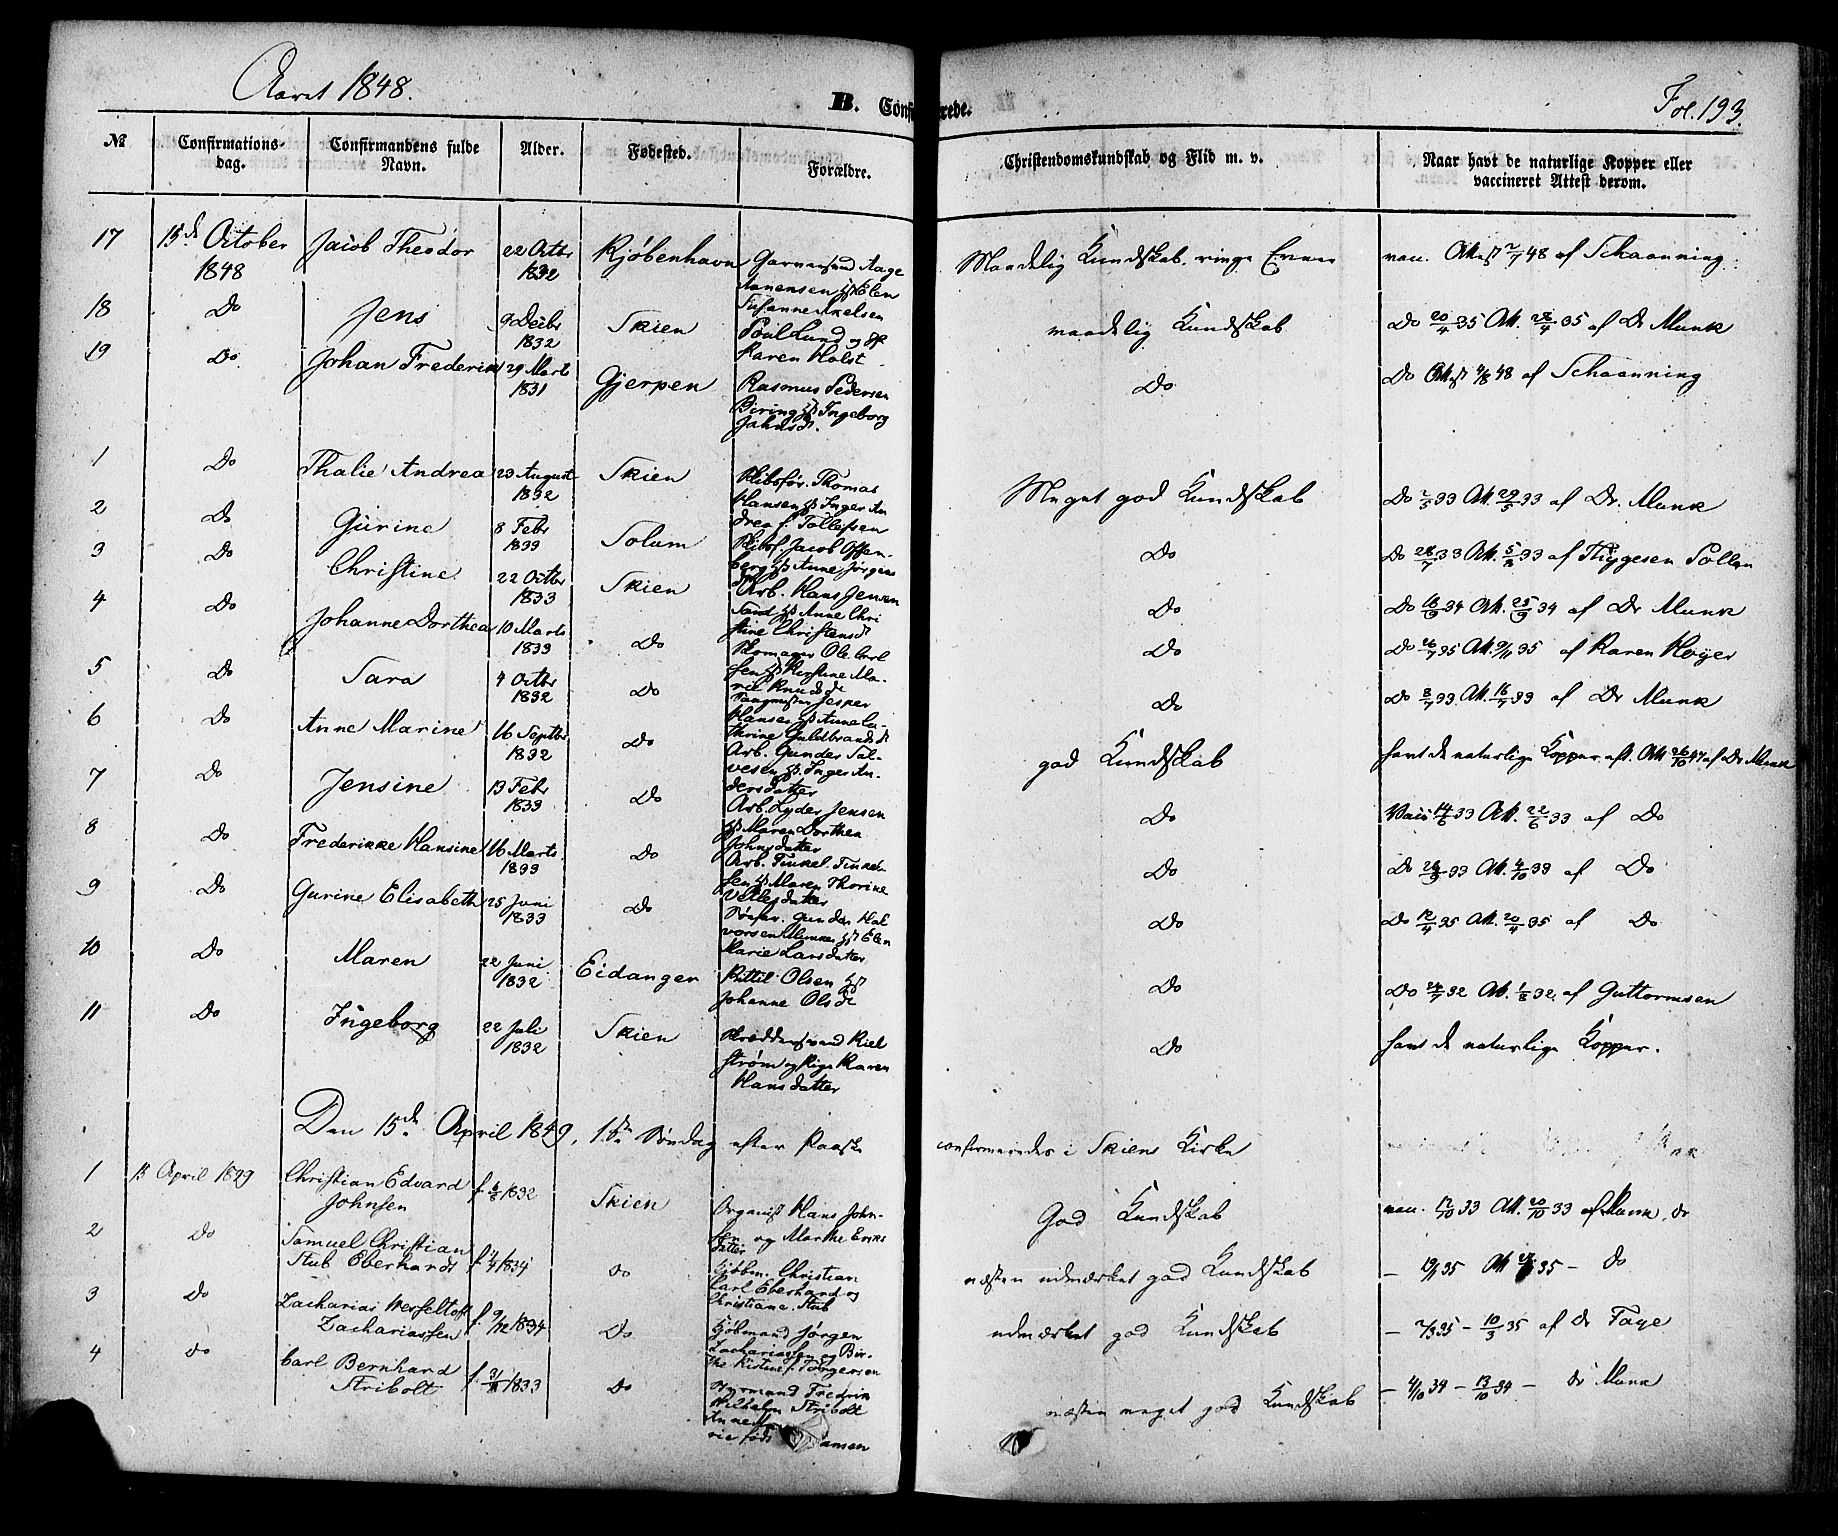 Aaret 1848.
B. Confirmerede.
Fol. 193.
№ Confirmations-dag. Confirmandens fulde Navn. Alder. Fødested. Forældre. Christendomskundskab og Flid m. v. Naar havt de naturlige Kopper eller vaccineret Attest derom.
17 15de October 1848 Jacob Theodor 22 Octbr 1832 Kjøbenhavn Garversvend Aage Aanensen Elen Susanne Axelsen Maadelig Kundskab. ringe Evner vac. Attest 2/7 48 af Schaanning
18 Do Jens 9 Decbr 1832 Skien Poul Lund og Karen Holst maadelig Kundskab Do 20/4 35 Att. 28/4 35 af Dr Munk
19 Do Johan Frederik 29 Marts 1831 Gjerpen Rasmus Pedersen Biring Ingeborg Jahnsdt. Do Do Attest 4/8 48 af Schaanning
1 Do Thalie Andrea 23 August 1832 Skien Skibsfør. Thomas Hansen Inger Andrea f. Tollefsen Meget god Kundskab Do 2/5 33 Att 29/5 33 af Dr. Munk
2 Do Gurine 8 Febr 1833 Solum Skibsf. Jacob Offenberg Anne Jørgensdt Do Do 28/7 33 Att 5/8 33 af Thygesen Sollen
3 Do Christine 22 Octbr 1833 Skien Arb. Hans Jensen Sand Anne Christine Christensdt Do Do 18/9 34 Att. 25/9 34 af Dr Munk
4 Do Johanne Dorthea 10 Marts 1833 Do Skomager Ole Carlsen Kirstine Marie Knudsdt Do Do 26/7 35 Att. 9/11 35 af Karen Høyer
5 Do Sara 4 Octbr 1832 Do Jesper Hansen Anne Cathrine Guldbrandsdt Do Do 8/7 33 Att. 16/7 33 af Dr Munk
6 Do Anne Marine 16 Septbr 1832 Do Arb. Gunder Salvesen Inger Andersdatter god Kundskab havt de naturlige Kopper eft. Att 26/10 47 af Dr Munk
7 Do Jensine 13 Febr 1833 Do Arb. Lyder Jensen Maren Dorthea Johnsdatter Do Vacc 14/6 33 Att. 22/6 33 af Do
8 Do Frederikke Hansine 16 Marts 1833 Do Arb. Tinkel Tinkelsen Maren Thorine Nillesdatter Do Do 24/9 33 Att. 4/10 33 af Do
9 Do Gurine Elisabeth 25 Juni 1833 Do Søefar. Gunder Halvorsen Munken Elen Marie Larsdatter Do Do 12/4 35 Att. 20/4 35 af Do
10 Do Maren 22 Juni 1832 Eidanger Kittil Olsen Johanne Olsdt Do Do 24/7 32 Att. 1/8 32 af Guttormsen
11 Do Ingeborg 22 Juli 1832 Skien Skræddersvend Kielstrøm og Pige Karen Hansdatter Do havt de naturlige Kopper.
Den 15de April 1849, 1ste Søndag efter Paaske confirmeredes i Skiens Kirke
1 15 April 1849 Christian Edvard Johnsen f. 6/8 1832 Skien Organist Hans Johnsen og Marthe Eriksdatter God Kundskab vac. 12/10 33 Att. 20/10 33 af Munk, dr
2 Do Samuel Christian Stub Eberhardt f. 4/4 1834 Do Kjøbm. Christian Carl Eberhard og Christiane Stub næsten udmærket god Kundskab
3 Do Zacharias Wesseltoft Zachariassen f. 9/12 1834 Do Kjøbmand Jørgen Zachariassen og Birthe Kistine f. Jørgensen udmærket god Kundskab – 2/3 35 – 10/3 35 af Dr Faye
4 Do Carl Bernhard Stribolt f. 1833 Do Fredrik Wilhelm Stribolt Anne Marie født næsten meget god Kundskab – 4/10 34 – 13/10 34 – Dr Munk